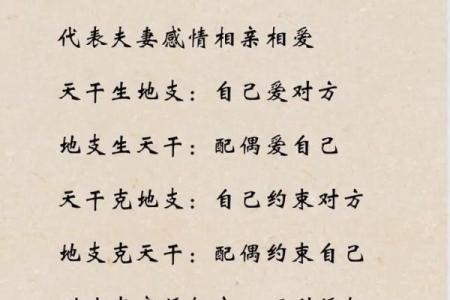 代表夫妻感情相亲相爱
天干生地支：自己爱对方
地支生天干：配偶爱自己
天干克地支：自己约束对方
地支克天干：配偶约束自己